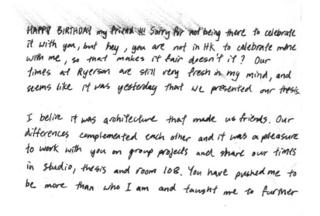 HAPPY BIRTHDAY my friend !!! Sorry for not being there to celebrate
it with you, but hey, you are not in HK to celebrate mine
with me, so that makes it fair doesn't it? Our
times at Ryerson are still very fresh in my mind, and
seems like it was yesterday that we presented our thesis.
I belive it was architecture that made us friends. Our
differences complemented each other and it was a pleasure
to work with you on group projects and share our times
in studio, thesis and room 108. You have pushed me to
be more than who I am and taught me to further